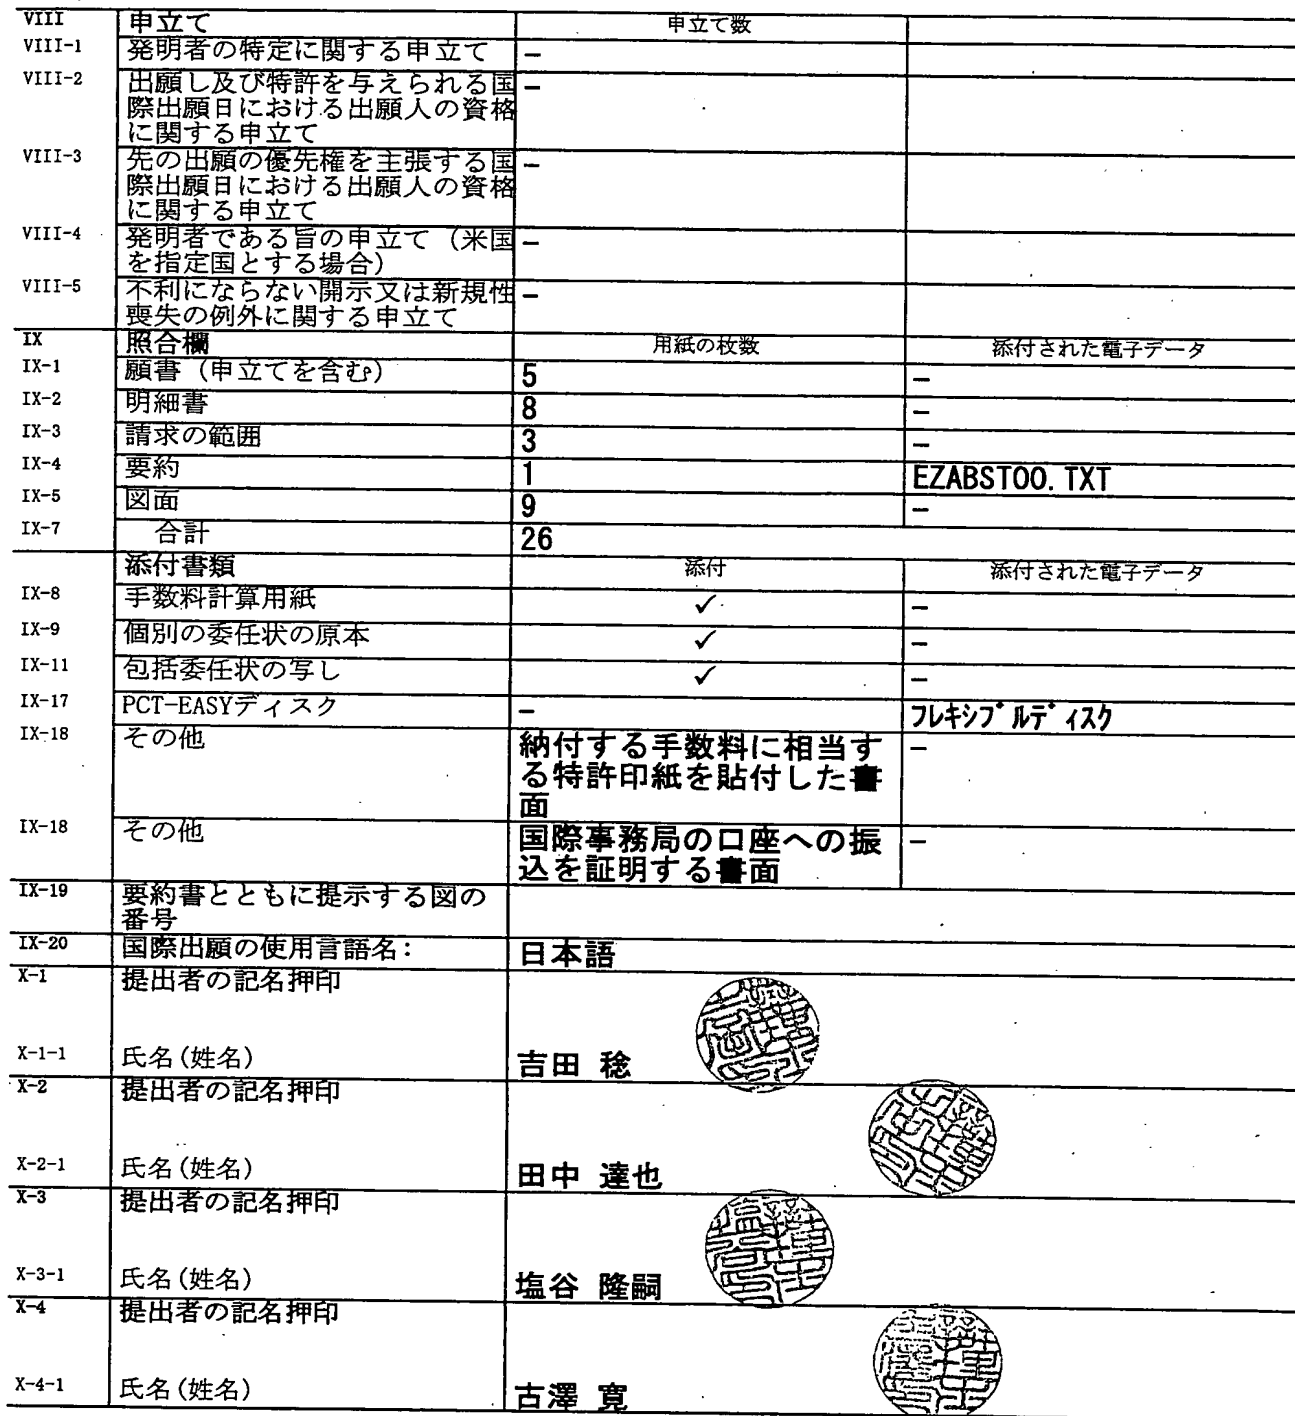 VIII 申立て 申立て数
VIII-1 発明者の特定に関する申立て –
VIII-2 出願し及び特許を与えられる国 –
際出願日における出願人の資格
に関する申立て
VIII-3 先の出願の優先権を主張する国 –
際出願日における出願人の資格
に関する申立て
VIII-4 発明者である旨の申立て（米国 –
を指定国とする場合）
VIII-5 不利にならない開示又は新規性 –
喪失の例外に関する申立て
IX 照合欄 用紙の枚数 添付された電子データ
IX-1 願書（申立てを含む） 5 –
IX-2 明細書 8 –
IX-3 請求の範囲 3 –
IX-4 要約 1 EZABST00.TXT
IX-5 図面 9 –
IX-7 合計 26
添付書類 添付 添付された電子データ
IX-8 手数料計算用紙 ✓ –
IX-9 個別の委任状の原本 ✓ –
IX-11 包括委任状の写し ✓ –
IX-17 PCT-EASYディスク – ﾌﾚｷｼﾌﾞﾙﾃﾞｨｽｸ
IX-18 その他 納付する手数料に相当す –
る特許印紙を貼付した書
面
IX-18 その他 国際事務局の口座への振 –
込を証明する書面
IX-19 要約書とともに提示する図の
番号
IX-20 国際出願の使用言語名： 日本語
X-1 提出者の記名押印
X-1-1 氏名(姓名) 吉田 稔
X-2 提出者の記名押印
X-2-1 氏名(姓名) 田中 達也
X-3 提出者の記名押印
X-3-1 氏名(姓名) 塩谷 隆嗣
X-4 提出者の記名押印
X-4-1 氏名(姓名) 古澤 寛